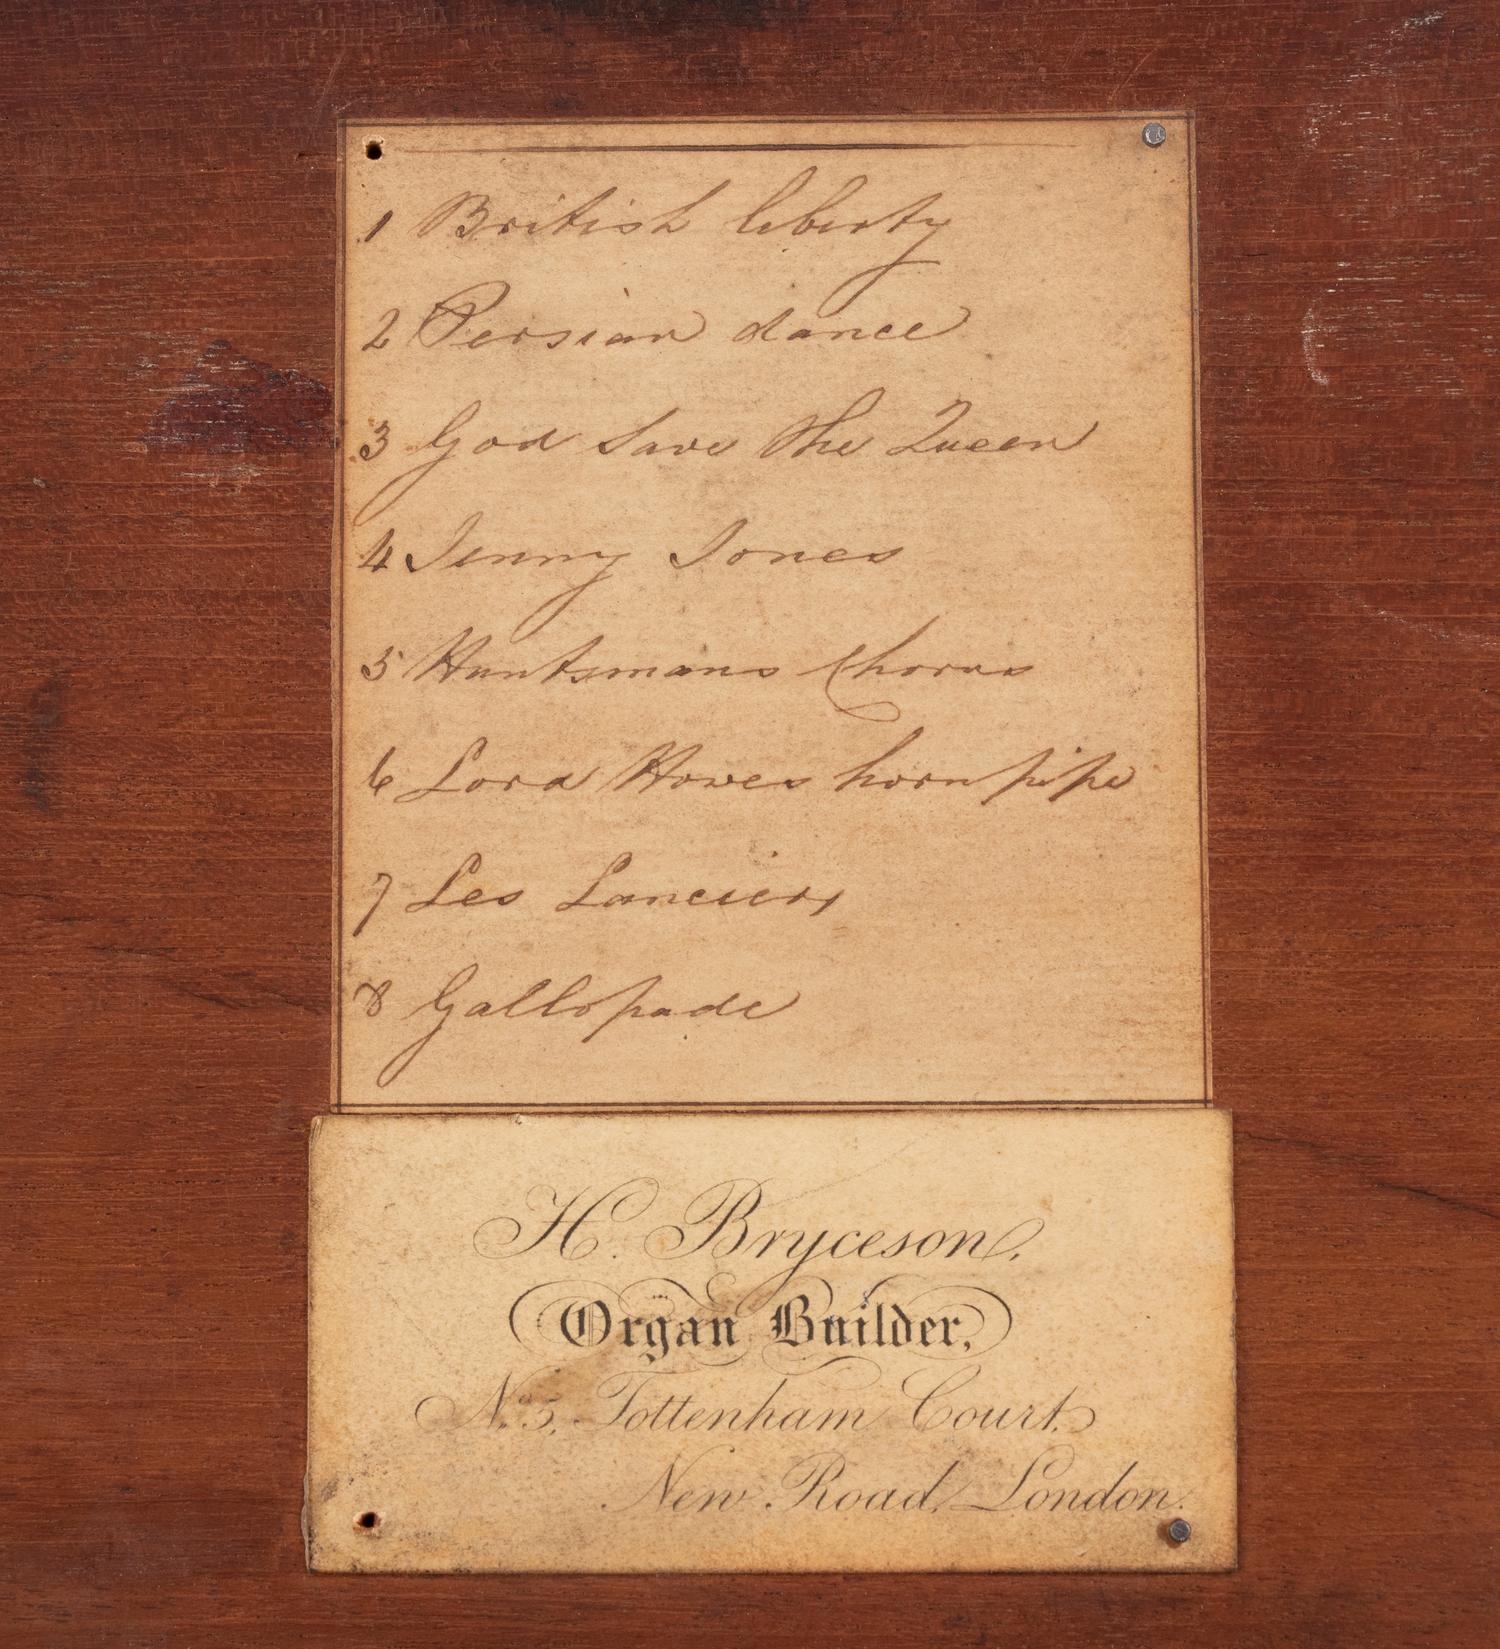 1 British liberty
2 Persian dance
3 God Save the Queen
4 Jenny Jones
5 Huntsmans Chorus
6 Lord Howes horn pipe
7 Les Lanciers
8 Gallopade
H. Bryceson,
Organ Builder,
No. 5, Tottenham Court,
New Road, London.